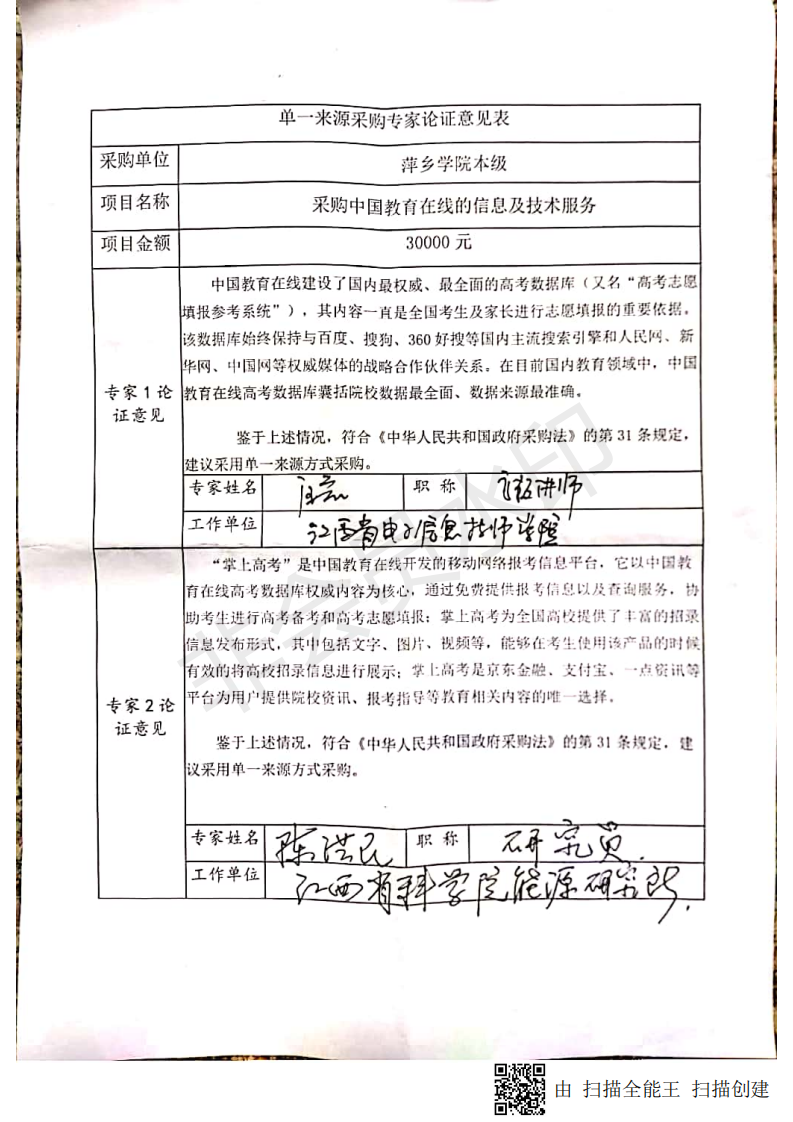 单一来源采购专家论证意见表
采购单位 萍乡学院本级
项目名称 采购中国教育在线的信息及技术服务
项目金额 30000 元
专家 1 论证意见
中国教育在线建设了国内最权威、最全面的高考数据库（又名“高考志愿
填报参考系统”），其内容一直是全国考生及家长进行志愿填报的重要依据。
该数据库始终保持与百度、搜狗、360 好搜等国内主流搜索引擎和人民网、新
华网、中国网等权威媒体的战略合作伙伴关系。在目前国内教育领域中，中国
教育在线高考数据库囊括院校数据最全面、数据来源最准确。
鉴于上述情况，符合《中华人民共和国政府采购法》的第 31 条规定，
建议采用单一来源方式采购。
专家姓名 职 称 讲师
工作单位 江西省电子信息技师学院
专家 2 论证意见
“掌上高考”是中国教育在线开发的移动网络报考信息平台，它以中国教
育在线高考数据库权威内容为核心，通过免费提供报考信息以及查询服务，协
助考生进行高考备考和高考志愿填报；掌上高考为全国高校提供了丰富的招录
信息发布形式，其中包括文字、图片、视频等，能够在考生使用该产品的时候
有效的将高校招录信息进行展示；掌上高考是京东金融、支付宝、一点资讯等
平台为用户提供院校资讯、报考指导等教育相关内容的唯一选择。
鉴于上述情况，符合《中华人民共和国政府采购法》的第 31 条规定，建
议采用单一来源方式采购。
专家姓名 陈洪民 职 称 研究员.
工作单位 江西省科学院能源研究所.
非会员水印
由 扫描全能王 扫描创建